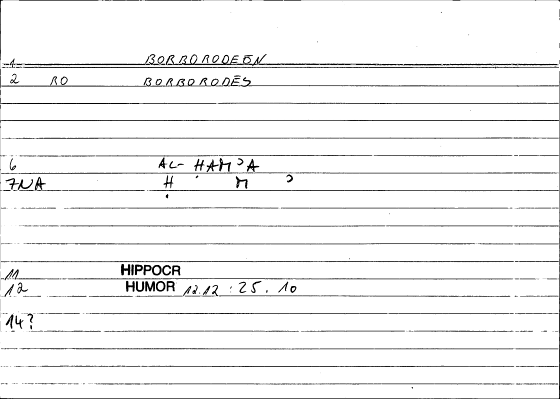 1 BORBORODEEN
2 RO BORBORODĒS
6 AL- ḤAMʾA
7NA Ḥ M ʾ
11 HIPPOCR
12 HUMOR 12.12 : 25. 10
14?